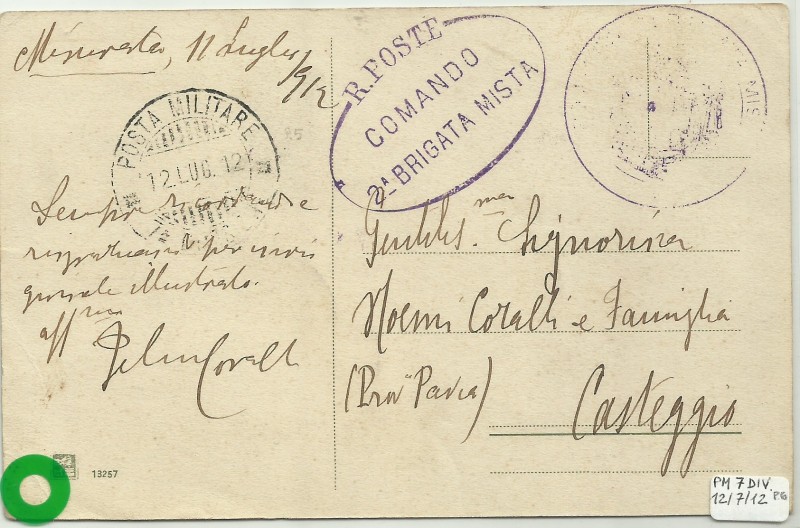 Misurata, 11 Luglio 1912
POSTA MILITARE
12.LUG.12
R. POSTE
COMANDO
2ª BRIGATA MISTA
MIS
Sempre ricordando e
ringraziando per invio
giornale illustrato.
aff.mo
Coralli
Gentilis.ma Signorina
Noemi Coralli e Famiglia
(Prov Pavia)
Casteggio
13257
PM 7 DIV.
12/7/12 PG